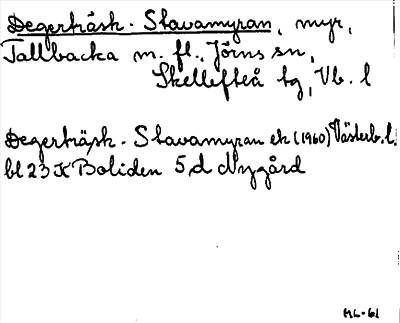 Degerträsk. Stavamyran, myr,
Tallbacka m. fl., Jörns sn,
Skellefteå tg, Vb. l
Degerträsk. Stavamyran ek (1960) Västerb. l.
bl 23 K Boliden 5 d Nygård
ML-61